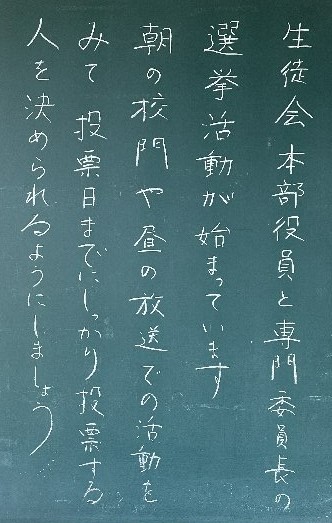 生徒会本部役員と専門委員長の
選挙活動が始まっています
朝の校門や昼の放送での活動を
みて 投票日までにしっかり投票する
人を決められるようにしましょう